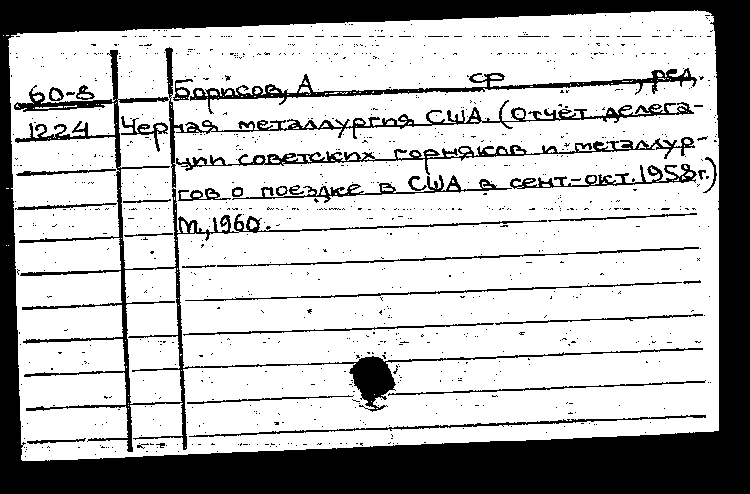 60-8 Борисов, А ср , ред.
1224 Черная металлургия США. (Отчёт делега-
ции советских горняков и металлур-
гов о поездке в США в сент.-окт. 1958г.)
М., 1960.